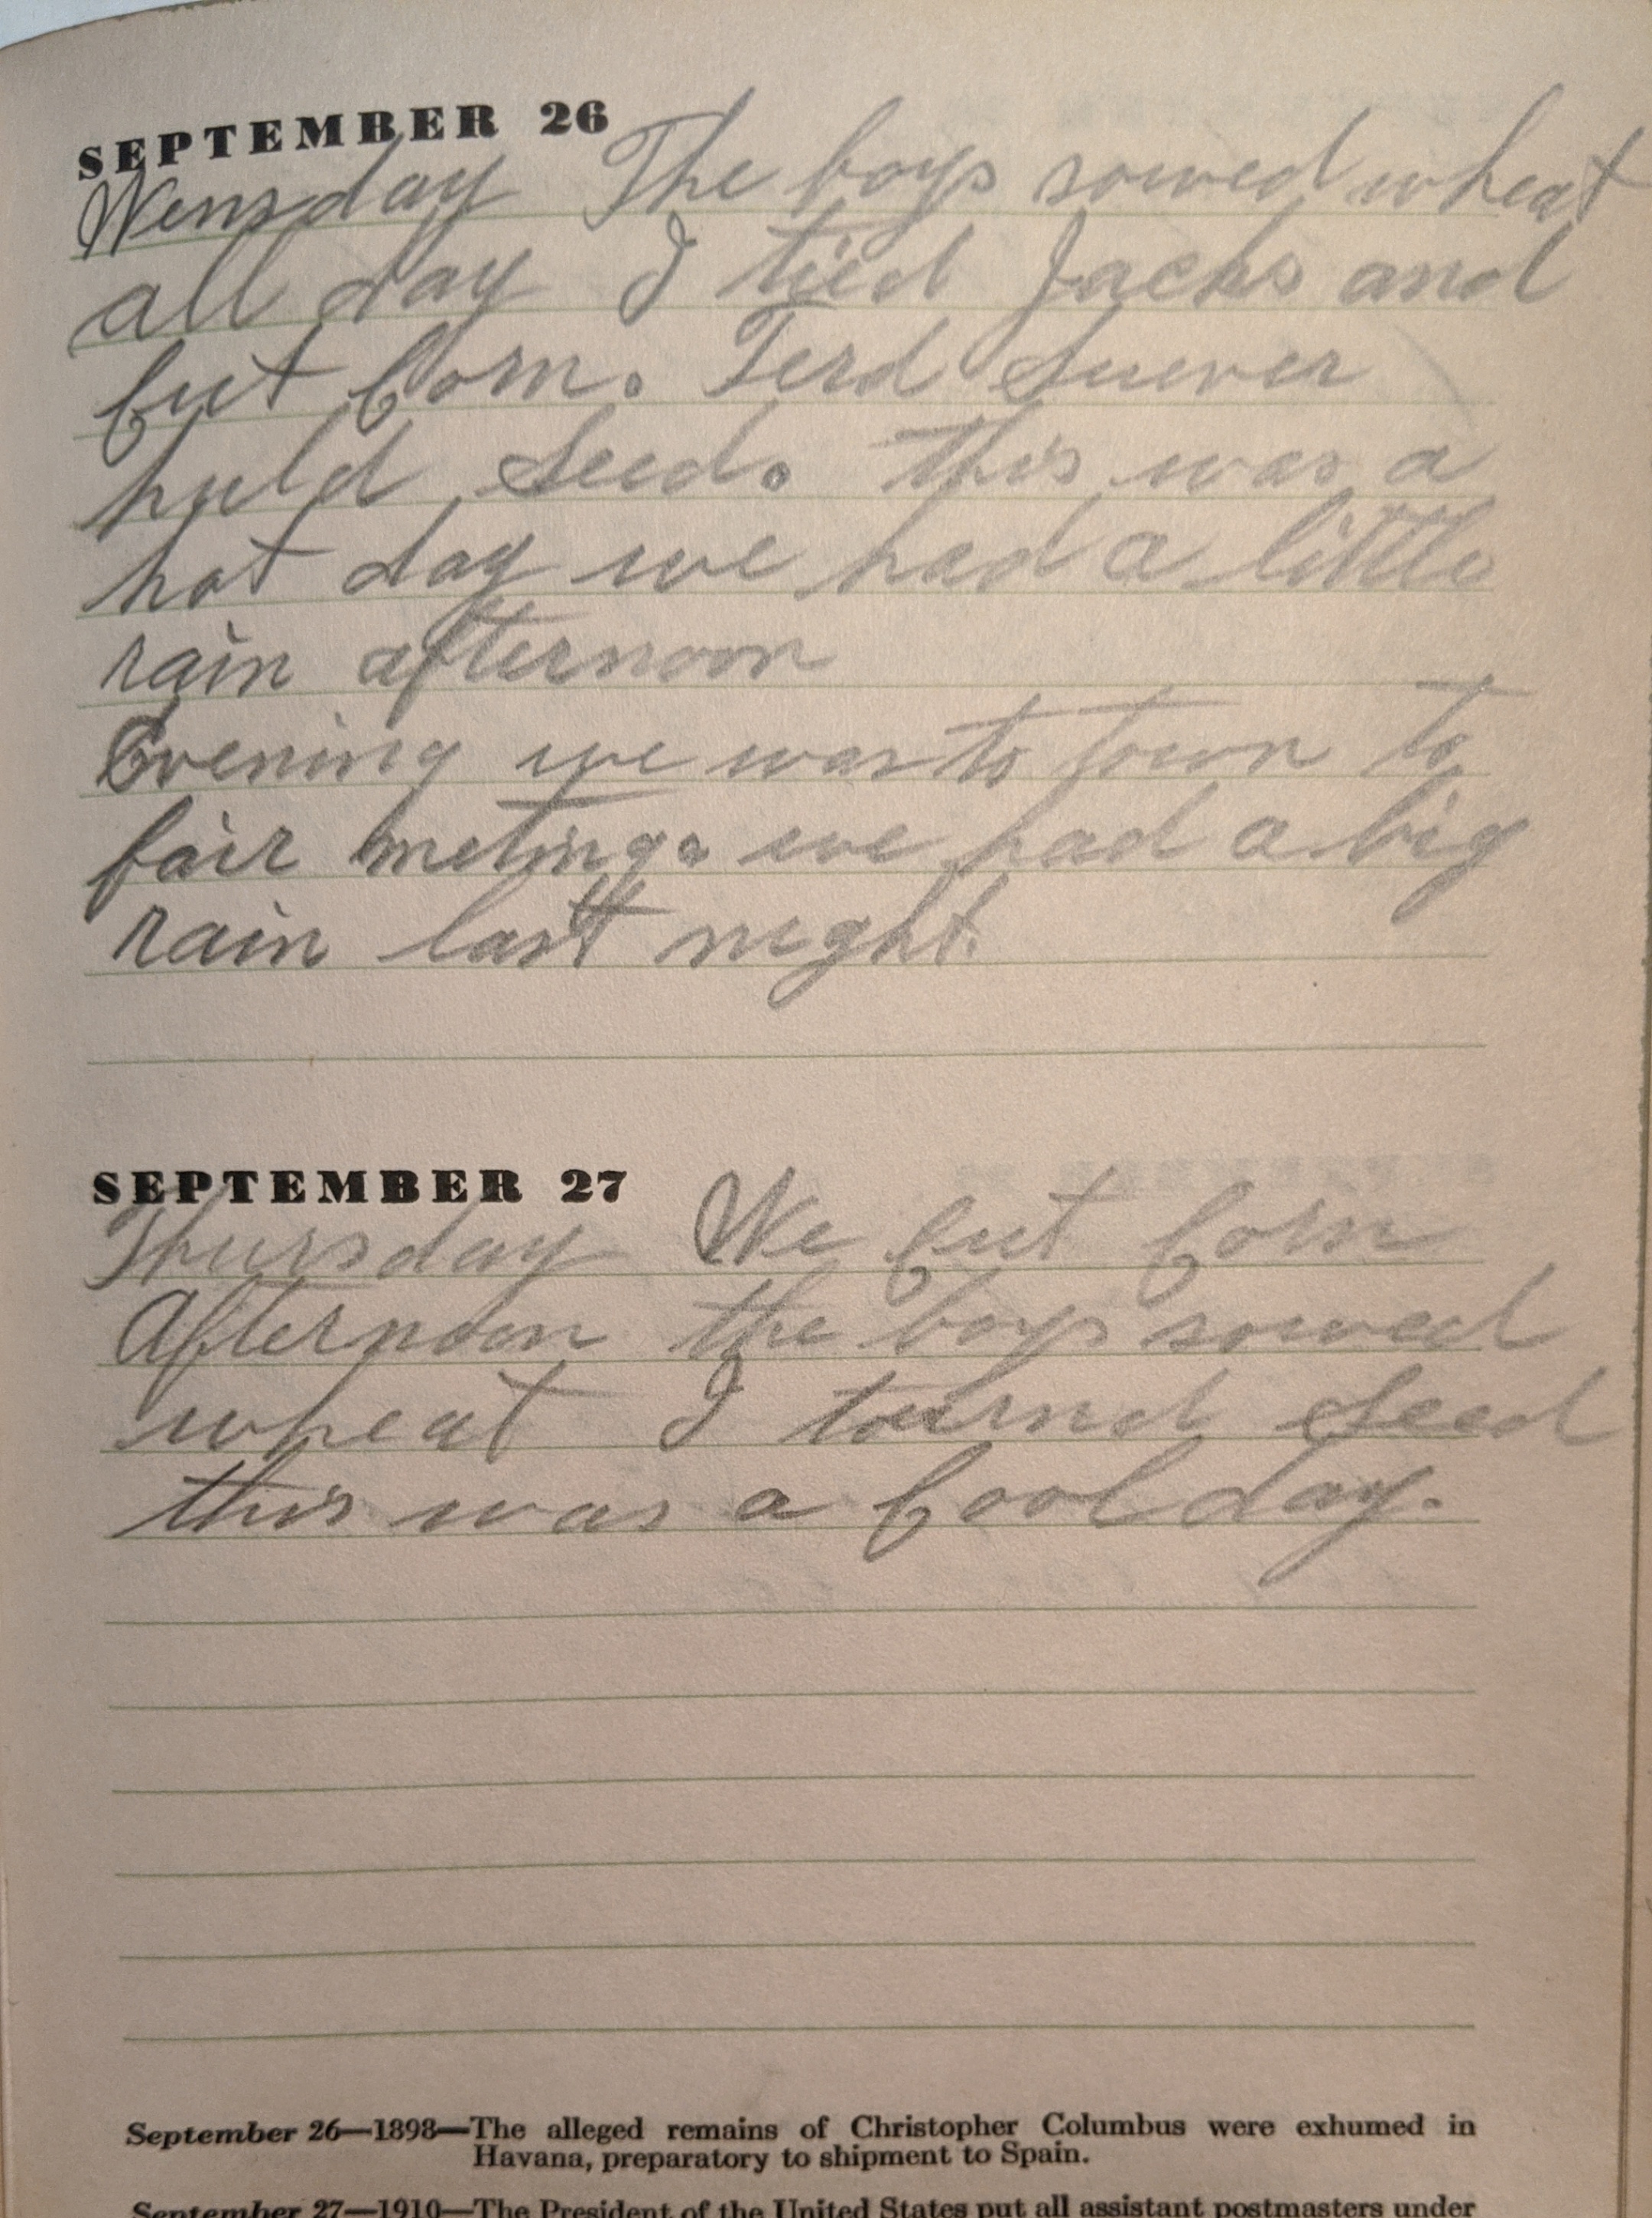 SEPTEMBER 26
Wensday The boys sowed wheat
all day I tied Jacks and
cut Corn. Ferd Suever
huld Seed. this was a
hot day we had a little
rain afternoon
Evening we was to town to
fair meting. we had a big
rain last night.
SEPTEMBER 27
Thursday We cut Corn
Afternoon the boys sowed
wheat I tournd Seed
this was a Cool day.
September 26—1898—The alleged remains of Christopher Columbus were exhumed in
Havana, preparatory to shipment to Spain.
September 27—1910—The President of the United States put all assistant postmasters under